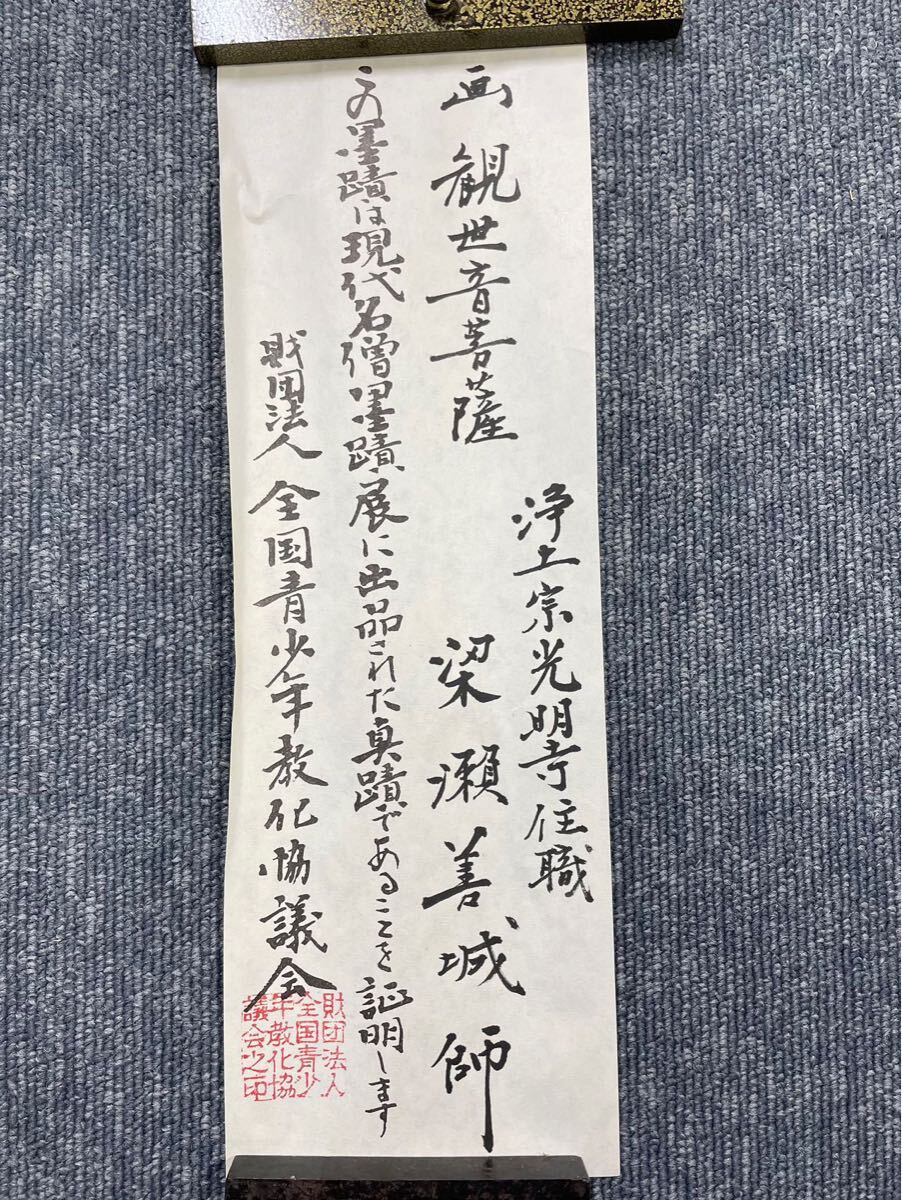 浄土宗光明寺住職
画 観世音菩薩 梁瀬善城師
この墨蹟は現代名僧墨蹟展に出品された真蹟であることを証明します
財団法人 全国青少年教化協議会
財団法人
全国青少
年教化協
議会之印